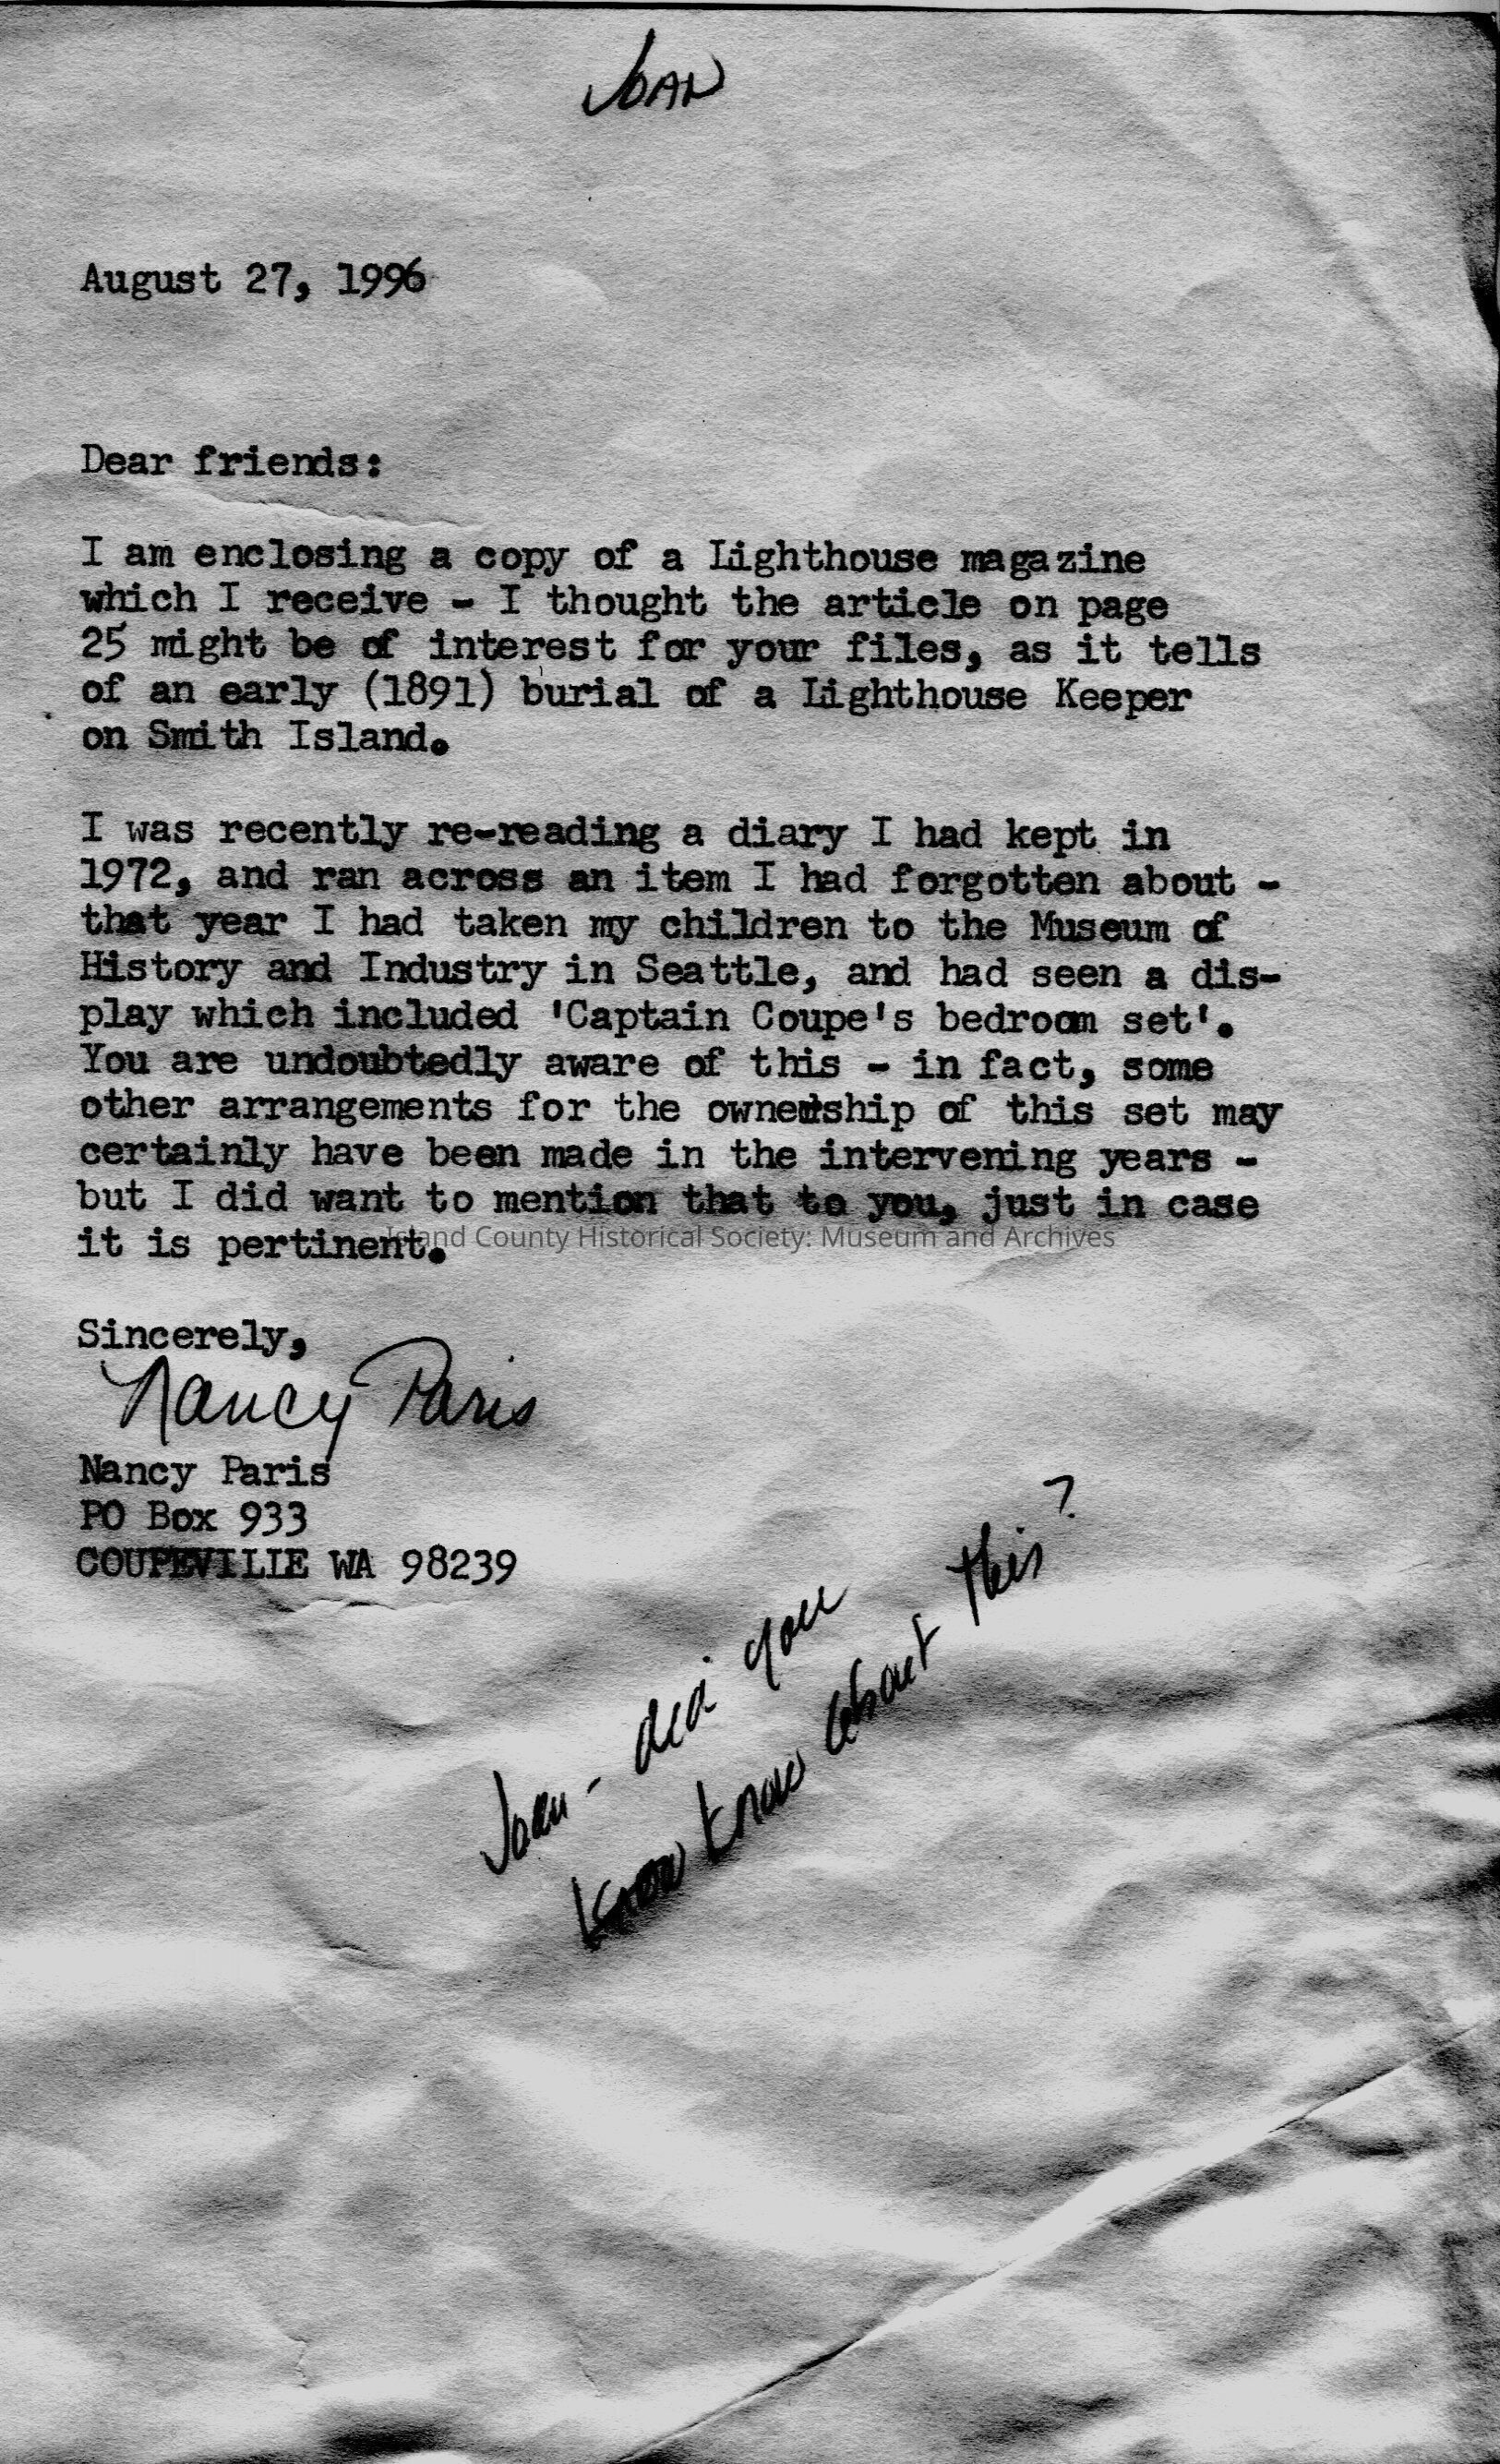 JOAN
August 27, 1996
Dear friends:
I am enclosing a copy of a Lighthouse magazine
which I receive - I thought the article on page
25 might be of interest for your files, as it tells
of an early (1891) burial of a Lighthouse Keeper
on Smith Island.
I was recently re-reading a diary I had kept in
1972, and ran across an item I had forgotten about -
that year I had taken my children to the Museum of
History and Industry in Seattle, and had seen a dis-
play which included 'Captain Coupe's bedroom set'.
You are undoubtedly aware of this - in fact, some
other arrangements for the ownership of this set may
certainly have been made in the intervening years -
but I did want to mention that to you, just in case
it is pertinent.
Island County Historical Society: Museum and Archives
Sincerely,
Nancy Paris
Nancy Paris
PO Box 933
COUPEVILLE WA 98239
Joan - did you
know know about this?